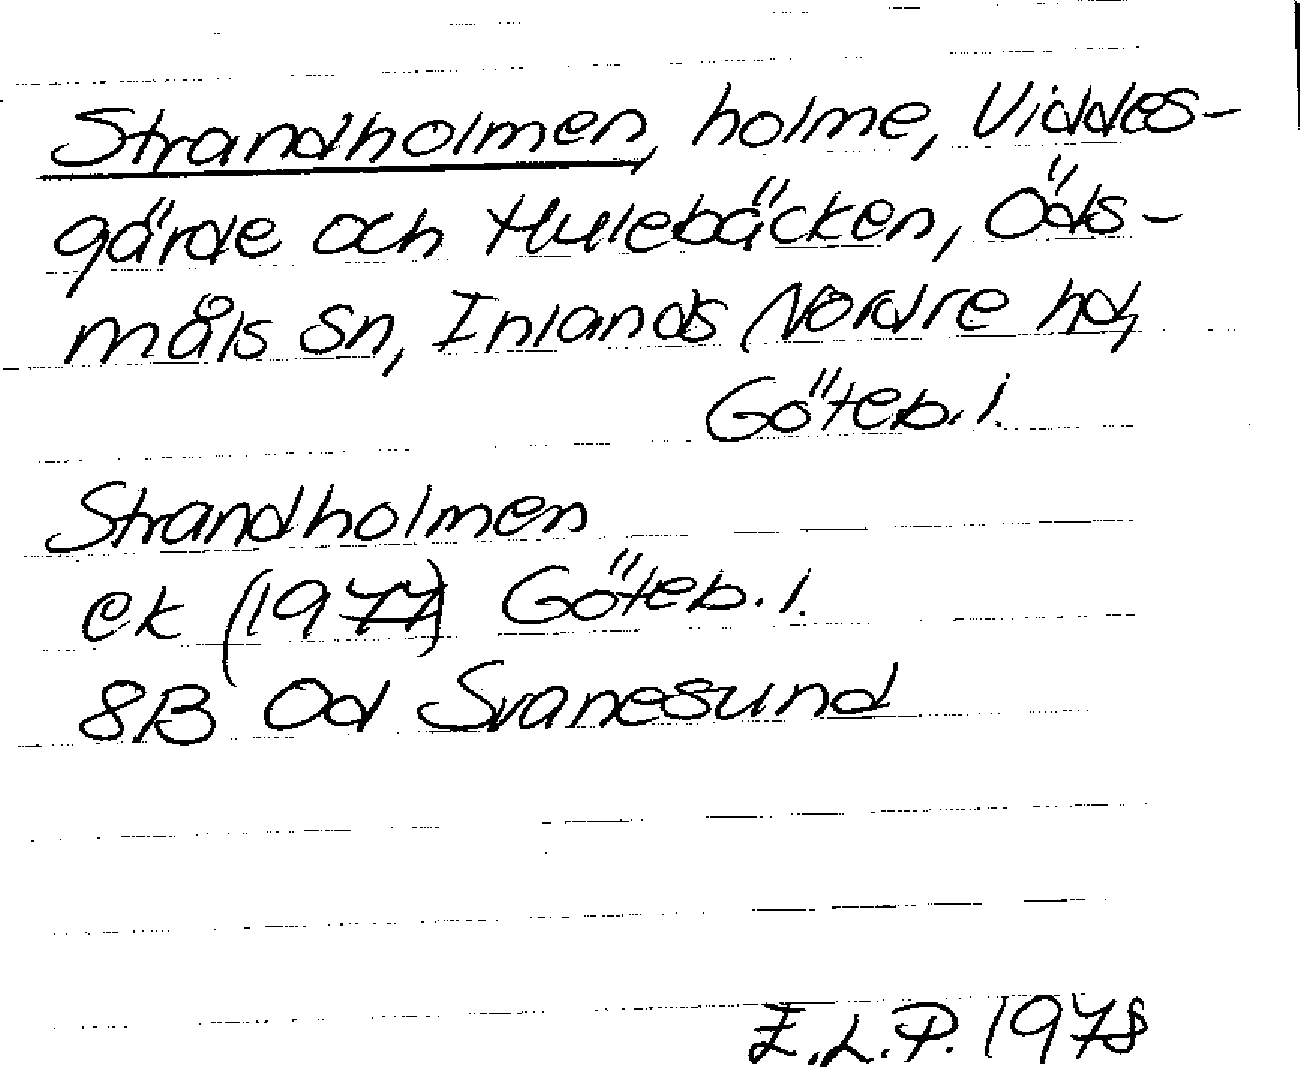 Strandholmen, holme, Viddes-
gärde och Hulebäcken, Öds-
måls sn, Inlands Nordre hd,
Göteb. l.
Strandholmen
ek (1977) Göteb. l.
8B 0d Svanesund
E.L.P. 1978